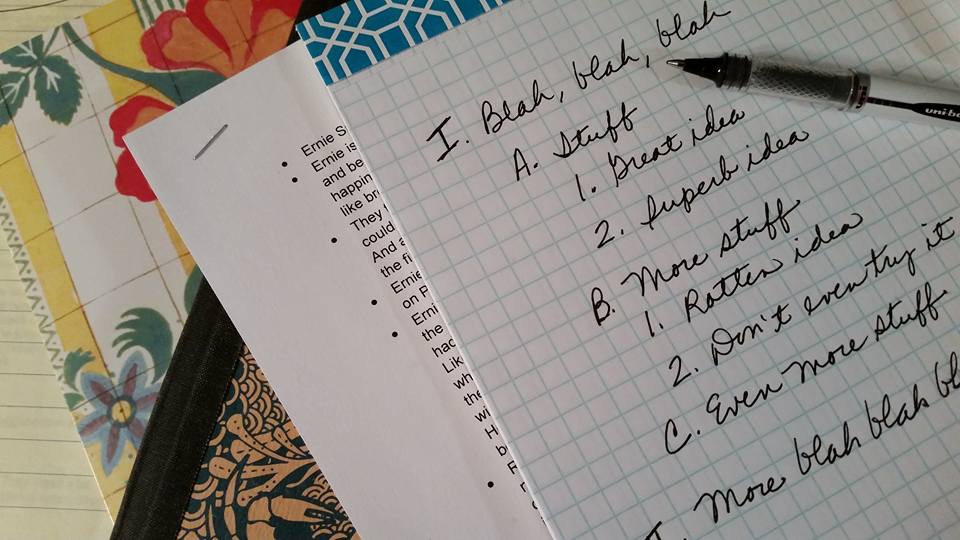 I. Blah, blah, blah
A. Stuff
1. Great idea
2. Superb idea
B. More stuff
1. Rotten idea
2. Don't even try it
C. Even more stuff
More blah blah
uni-ba
Ernie S
Ernie is
and be
happin
like br
They
could
And a
the fi
Ernie
on P
Erni
the
hac
Lik
wh
the
wi
H
b